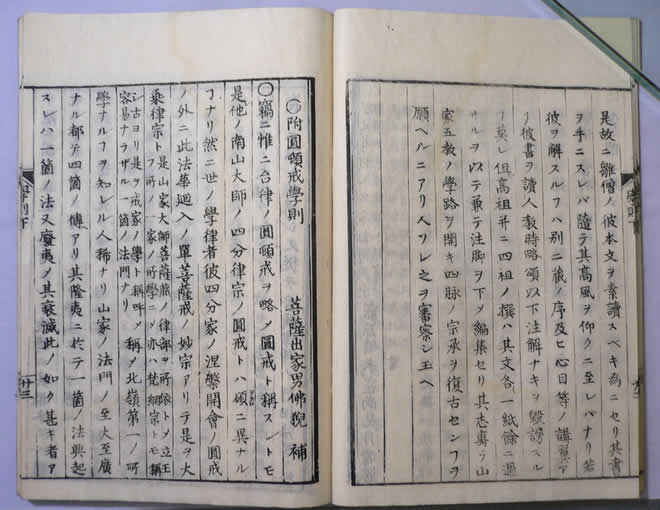 是故ニ雛僧ノ彼本文ヲ素讀スベキ爲ニセリ其書
ヲ手ニスレバ隨テ其高風ヲ仰クニ至レバナリ若
彼ヲ解スルフハ別ニ蔵ノ序及ヒ心目等ノ講アリ
彼書ヲ讀人教時略頌以下注解ナキヲ毀謗スル
フ莫レ但高祖并ニ四祖ノ撰ハ其文各一紙餘ニ過
サルヲ以テ兼テ注脚ヲ下メ編集セリ其志山
家五教ノ學路ヲ開キ四脉ノ宗承ヲ復古センフヲ
願ヘルニアリ人ソレ之ヲ審察シ玉ヘ
〇附圓頓戒學則 菩薩出家男佛猊 補
〇竊ニ惟ニ台律ノ圓頓戒ヲ略メ圓戒ト稱スレトモ
是他ノ南山大師ノ四分律宗ノ圓戒トハ頌ニ異ナル
フナリ然ニ世ノ學律者彼四分家ノ涅槃開會ノ圓戒
ノ外ニ此法華迴入ノ單菩薩戒ノ妙宗アリテ是ヲ大
乘律宗トフ是山家大師菩薩蔵ノ律部ヲ所依トメ立玉
フ所ノ一家ノ所學ニメ亦ハ梵網宗トモ稱
シ古ヨリ是ヲ戒家ノ學ト稱呼メ稱メ北嶺第一ノ所
容易ナラザル一箇ノ法門ナリ
學ナルフヲ知レル人稀ナリ山家ノ法門ノ至大至廣
ナル都テ四箇ノ傳アリ其隆夷ニ於テ一箇ノ法興起
スレハ一箇ノ法又廢夷ノ其衰減此ノ如ク甚キ者ア
學則下
廿三